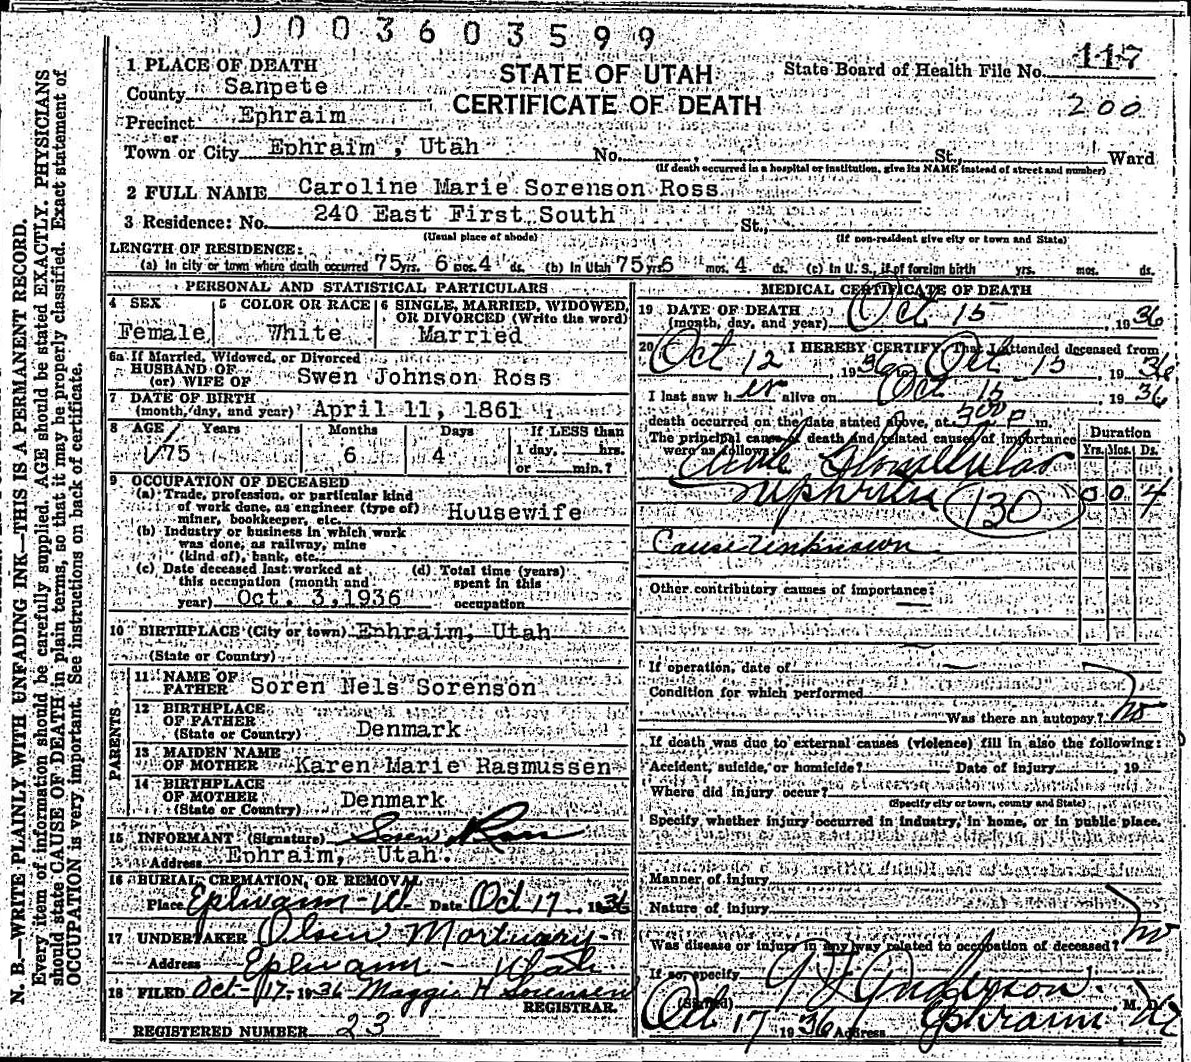 0003603599
1 PLACE OF DEATH
STATE OF UTAH
State Board of Health File No. 117
County Sanpete
CERTIFICATE OF DEATH
200
Precinct Ephraim
or
Town or City Ephraim, Utah No. St., Ward
(If death occurred in a hospital or institution, give its NAME instead of street and number)
2 FULL NAME Caroline Marie Sorenson Ross
3 Residence: No. 240 East First South St.,
(Usual place of abode) (If non-resident give city or town and State)
LENGTH OF RESIDENCE:
(a) In city or town where death occurred 75 yrs. 6 mos. 4 ds. (b) In Utah 75 yrs 6 mos. 4 ds. (c) In U. S., if of foreign birth yrs. mos. ds.
PERSONAL AND STATISTICAL PARTICULARS
4 SEX Female
5 COLOR OR RACE White
6 SINGLE, MARRIED, WIDOWED, OR DIVORCED (Write the word) Married
6a If Married, Widowed, or Divorced
HUSBAND OF
(or) WIFE OF Swen Johnson Ross
7 DATE OF BIRTH
(month, day, and year) April 11, 1861
8 AGE Years Months Days If LESS than
75 6 4 1 day, hrs.
or min.?
9 OCCUPATION OF DECEASED
(a) Trade, profession, or particular kind
of work done, as engineer (type of)
miner, bookkeeper, etc. Housewife
(b) Industry or business in which work
was done, as railway, mine
(kind of), bank, etc.
(c) Date deceased last worked at
this occupation (month and
year) Oct. 3, 1936
(d) Total time (years)
spent in this
occupation
10 BIRTHPLACE (City or town) Ephraim, Utah
(State or Country)
PARENTS
11 NAME OF
FATHER Soren Nels Sorenson
12 BIRTHPLACE
OF FATHER
(State or Country) Denmark
13 MAIDEN NAME
OF MOTHER Karen Marie Rasmussen
14 BIRTHPLACE
OF MOTHER
(State or Country) Denmark
15 INFORMANT (Signature) Soren Ross
Address Ephraim, Utah.
16 BURIAL, CREMATION, OR REMOVAL
Place Ephraim - Ut Date Oct 17 1936
17 UNDERTAKER Olsen Mortuary
Address Ephraim - Utah
18 FILED Oct - 17, 1936 Maggie H Sorensen
REGISTRAR.
REGISTERED NUMBER 23
MEDICAL CERTIFICATE OF DEATH
19 DATE OF DEATH
(month, day, and year) Oct 15, 1936
20 I HEREBY CERTIFY, That I attended deceased from
Oct 12, 1936 to Oct 15, 1936
I last saw h er alive on Oct 15 1936
death occurred on the date stated above, at 300 P m.
The principal cause of death and related causes of importance
were as follows:
Duration
Yrs. Mos. Ds.
Acute Glomelular
nephritis 130 0 0 4
Cause unknown
Other contributory causes of importance:
If operation, date of
Condition for which performed
Was there an autopsy? no
If death was due to external causes (violence) fill in also the following:
Accident, suicide, or homicide? Date of injury , 19
Where did injury occur?
(Specify city or town, county and State)
Specify whether injury occurred in industry, in home, or in public place.
Manner of injury
Nature of injury
Was disease or injury in any way related to occupation of deceased? no
If so, specify
(Signed) Anderson M. D.
Oct 17 1936 Address Ephraim Ut
N. B.—WRITE PLAINLY WITH UNFADING INK—THIS IS A PERMANENT RECORD.
Every item of information should be carefully supplied. AGE should be stated EXACTLY. PHYSICIANS
should state CAUSE OF DEATH in plain terms, so that it may be properly classified. Exact statement of
OCCUPATION is very important. See instructions on back of certificate.